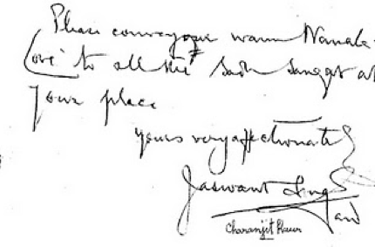 Please convey our warm Namaste
Love to all the Sadh Sangat at
your place
yours very affectionately
Jaswant Singh
Charanjit Kaur